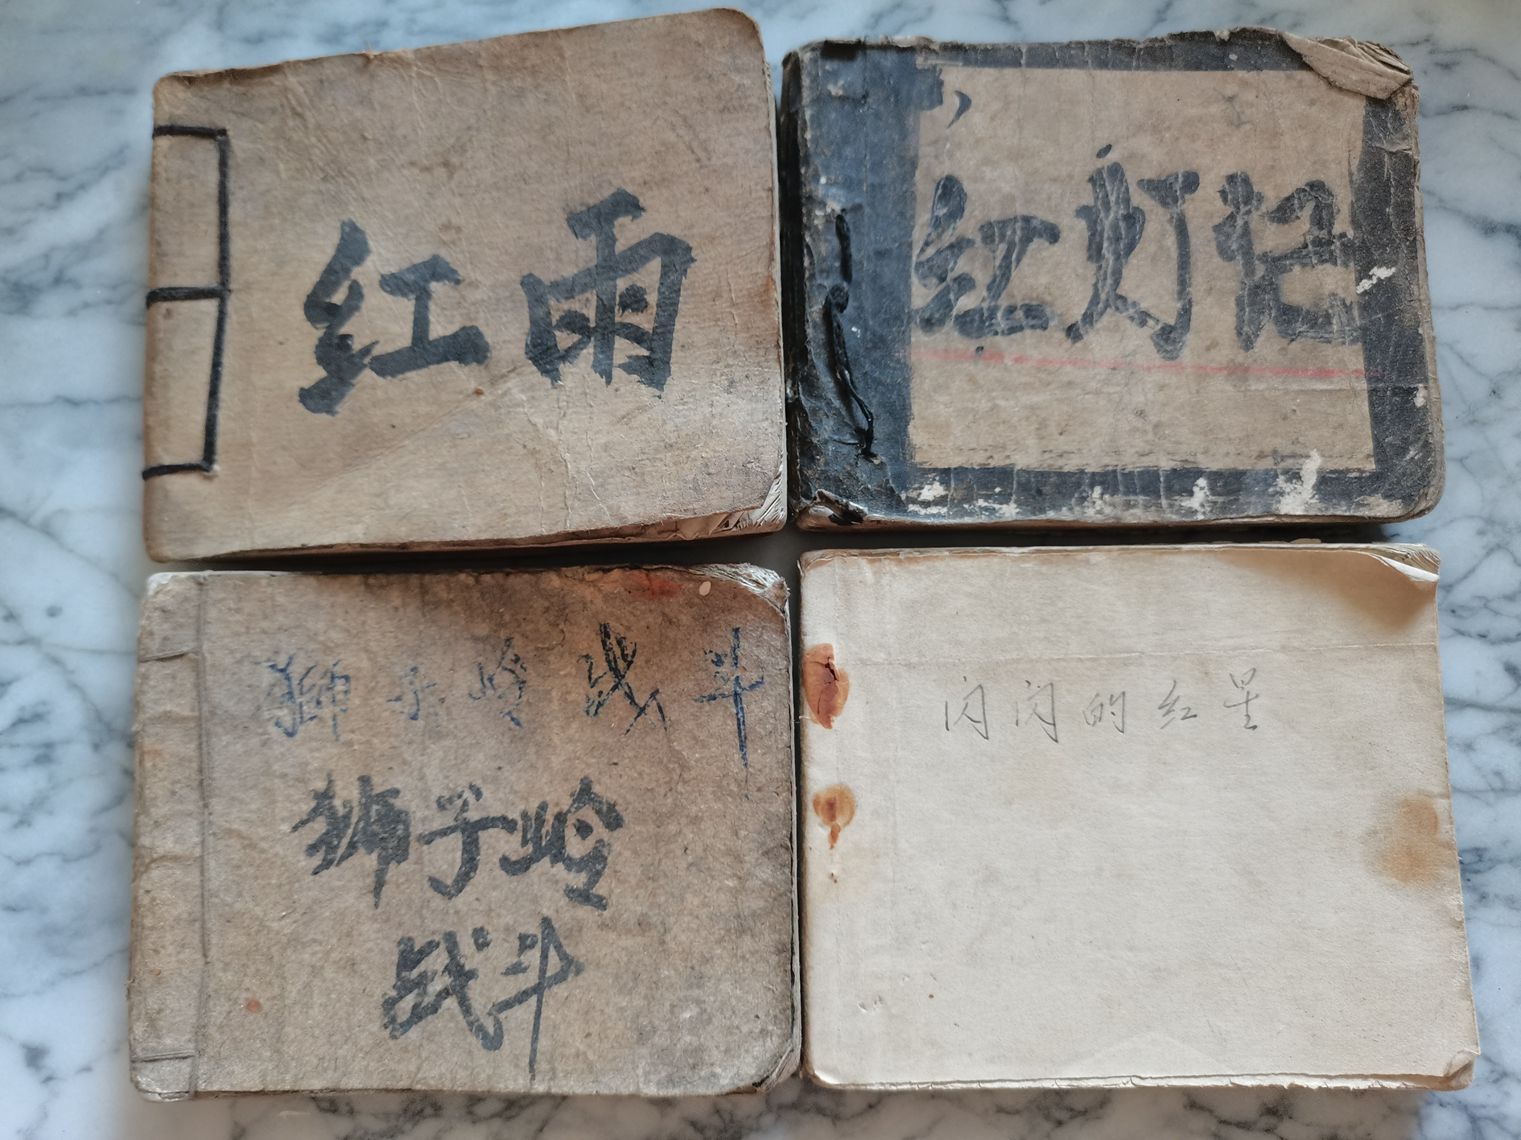 红雨
红灯记
狮子岭战斗
狮子岭
战斗
闪闪的红星